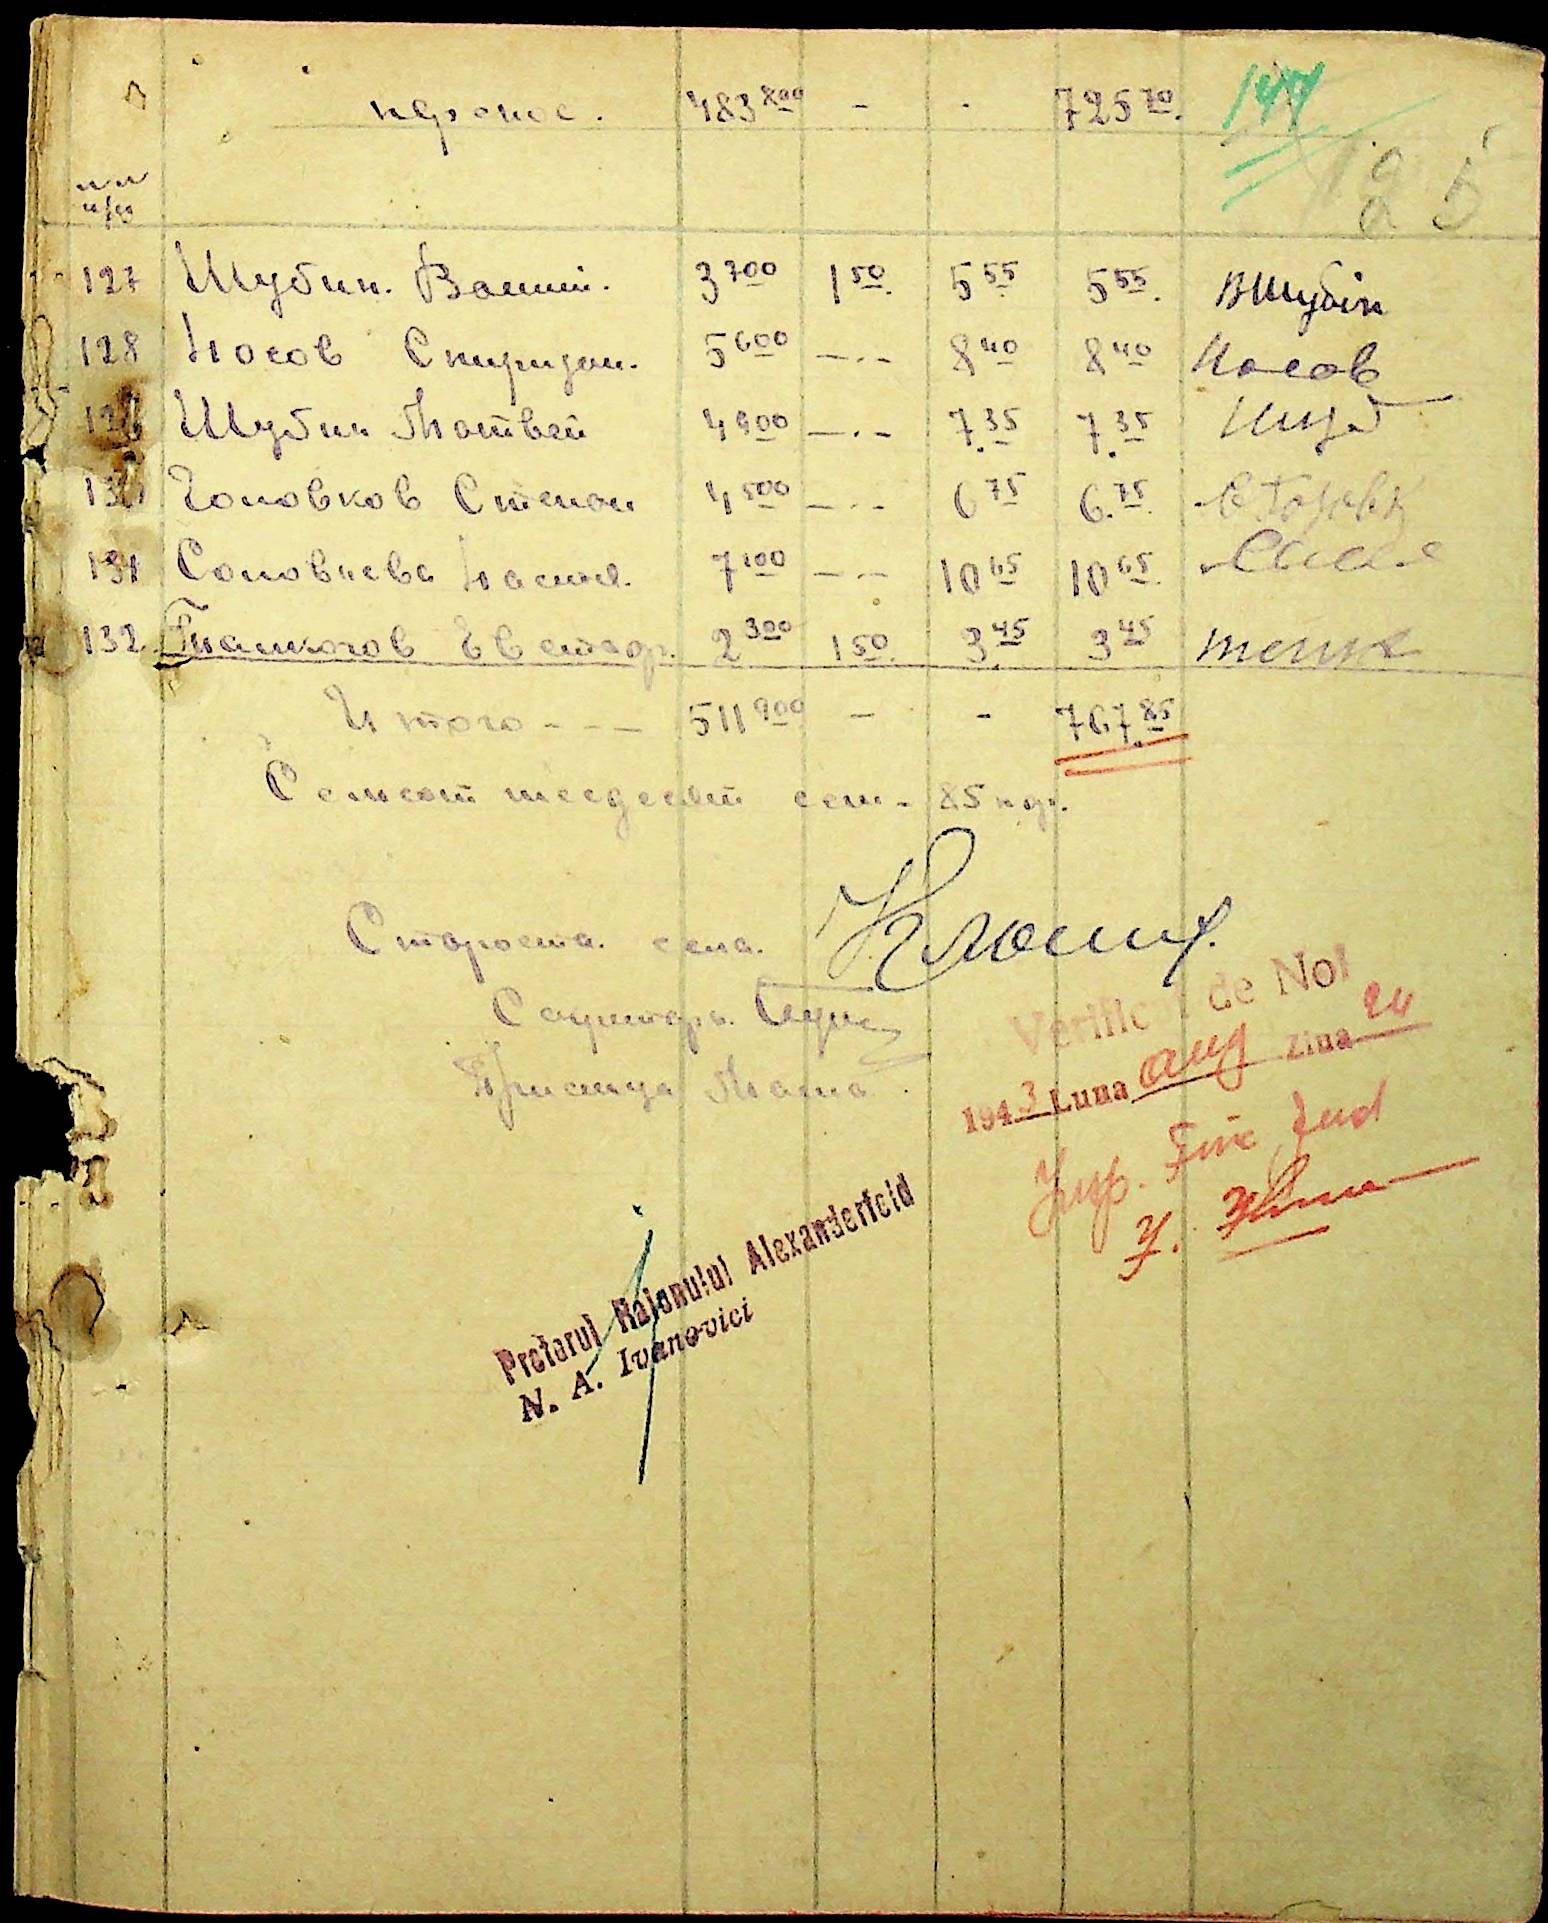 перенос. 483 800 - - 725 70. 144
125
№№
п/п
127 Шубин. Василий. 3 700 1 50. 5 55 5 55. ВШубін
128 Носов Спиридон. 5 600 —.- 8 40 8 40 Носов
129 Шубин Матвей 4 900 —.- 7.35 7.35 Шуб
130 Головков Степан 4 500 —.- 6 75 6.75.
131 Соловьева Настя. 7 100 —.- 10 65 10 65.
132 Евстафь. 2 300 1 50. 3 45 3 45
Итого - - — 511 900 - - 767.85
Семьсот шесдесят сем - 85 пф.
Староста. села.
Секретарь.
Verificat de Noi
1943 Luna aug Ziua 24
Insp. Fin Jud
Pretorul Raionului Alexanderfeld
N. A. Ivanovici